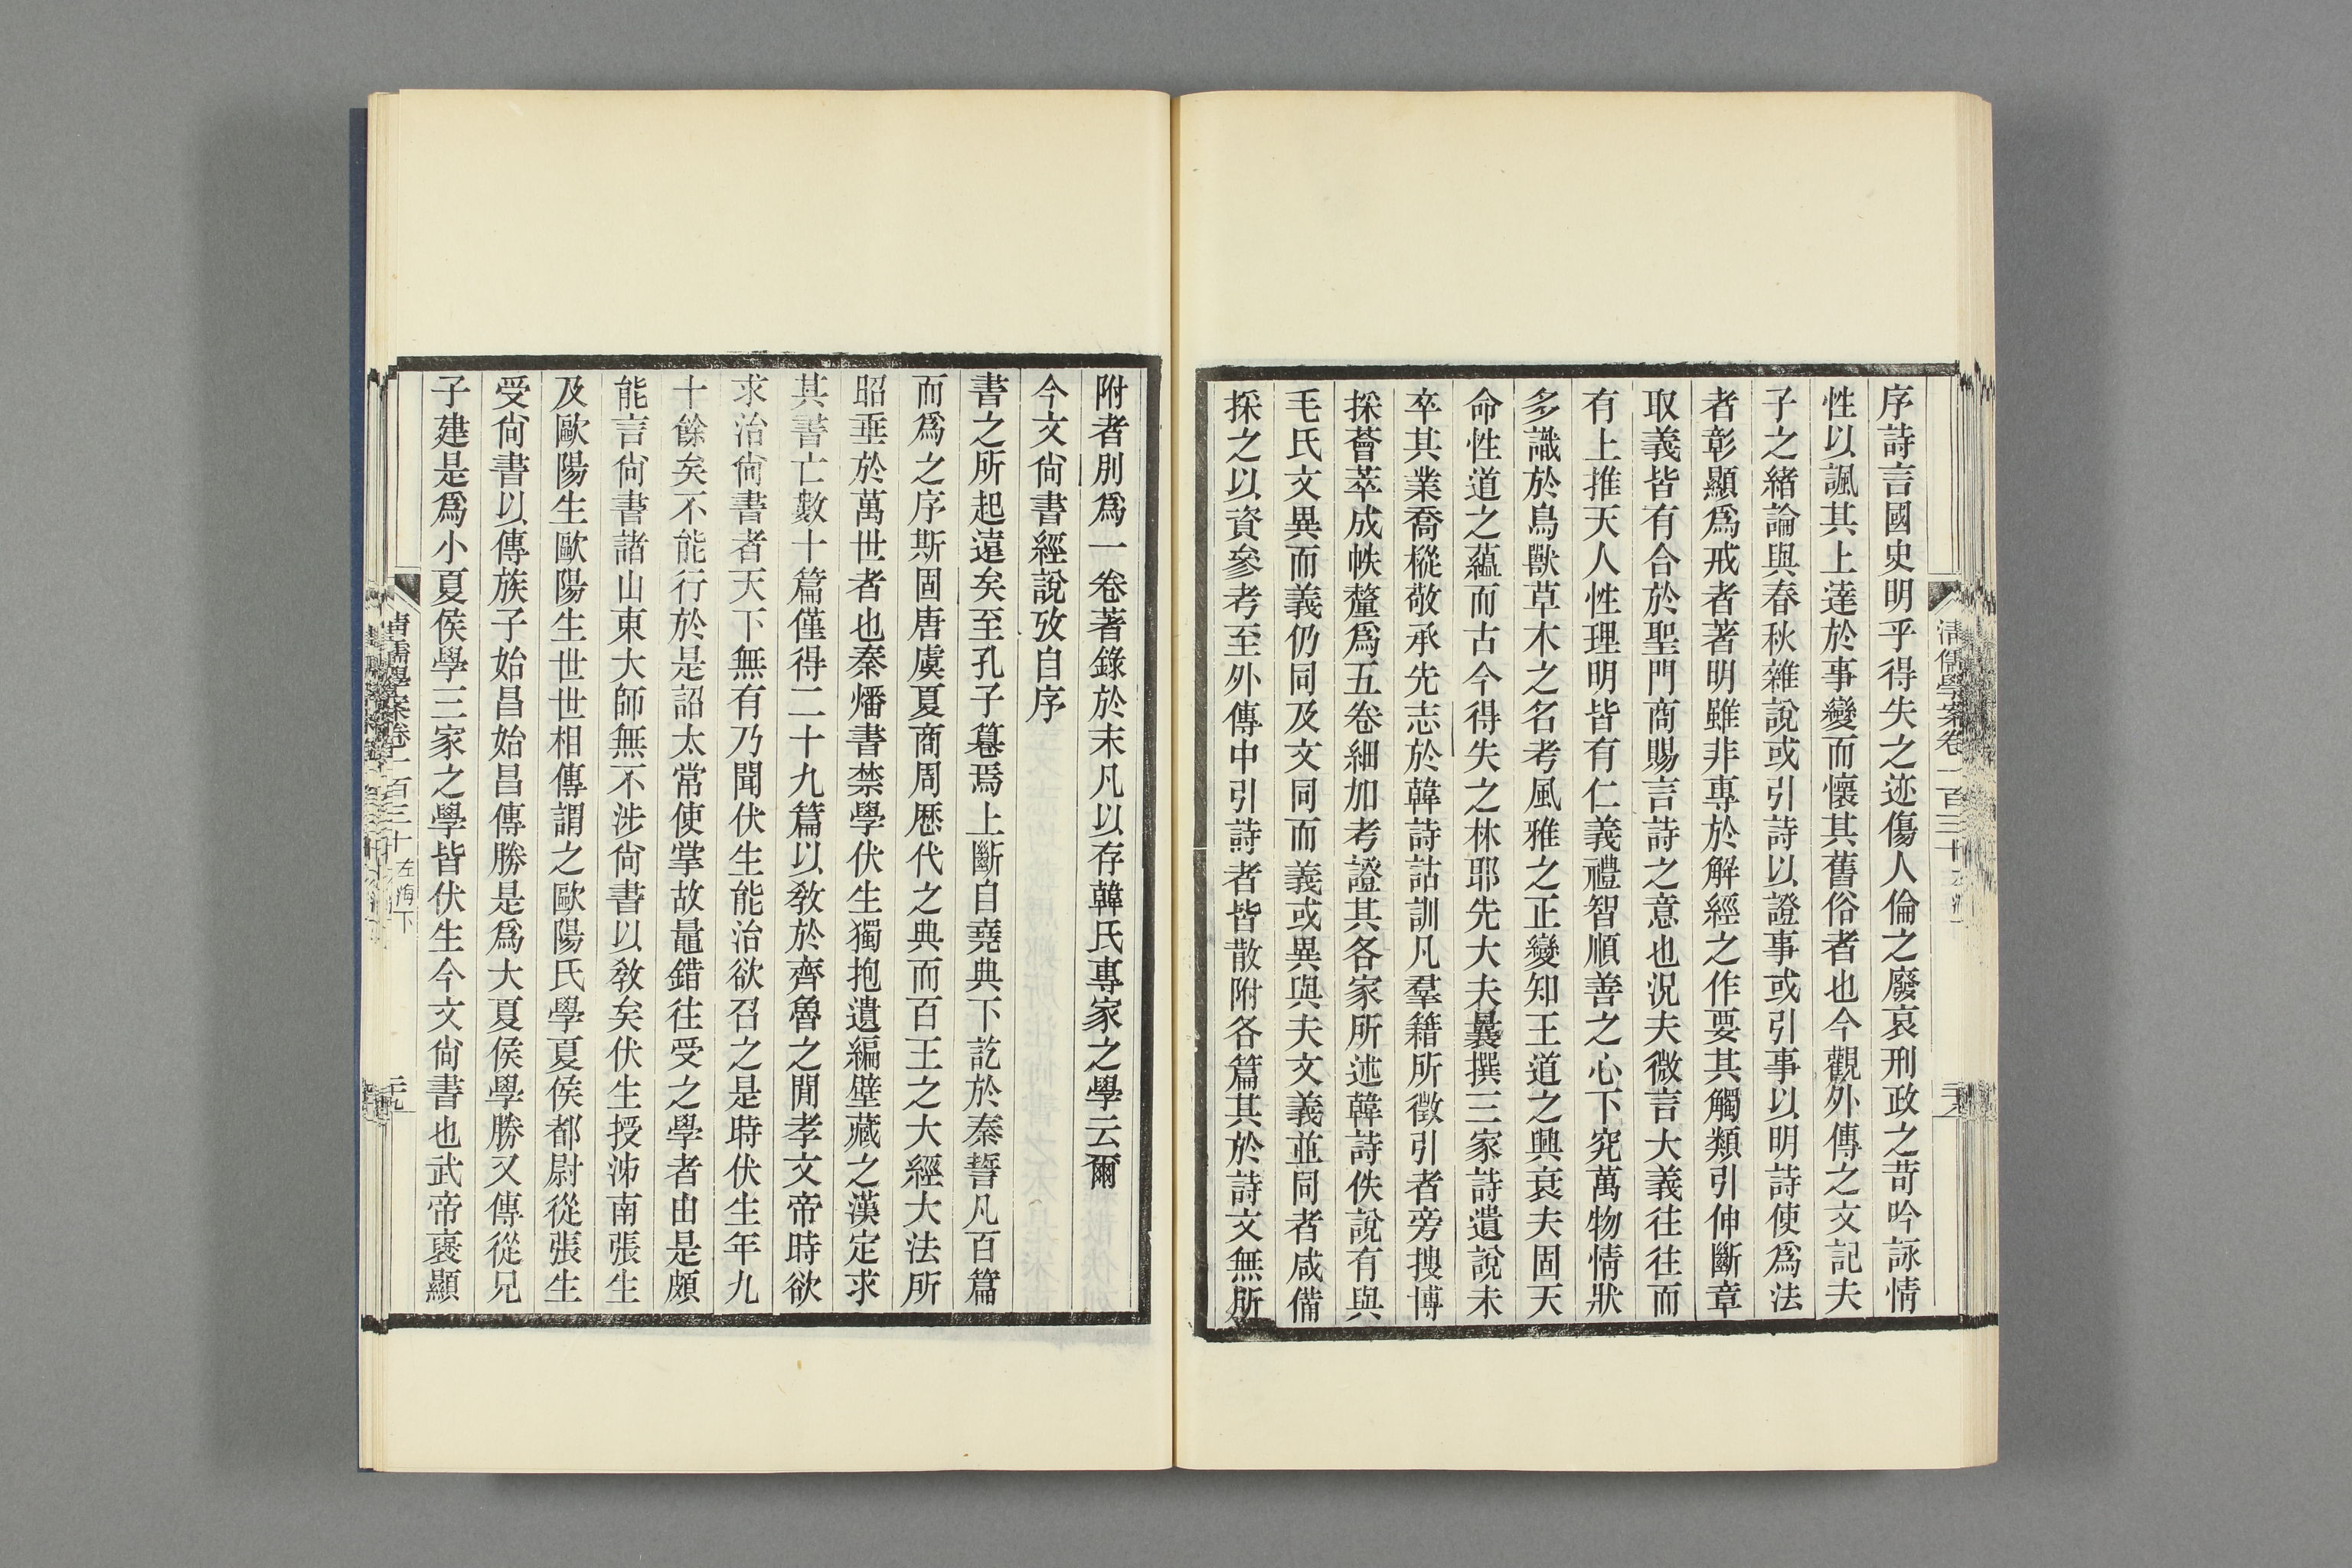 序詩言國史明乎得失之迹傷人倫之廢哀刑政之苛吟詠情
性以諷其上達於事變而懷其舊俗者也今觀外傳之文記夫
子之緒論與春秋雜說或引詩以證事或引事以明詩使爲法
者彰顯爲戒者著明雖非專於解經之作要其觸類引伸斷章
取義皆有合於聖門商賜言詩之意也況夫微言大義往往而
有上推天人性理明皆有仁義禮智順善之心下究萬物情狀
多識於鳥獸草木之名考風雅之正變知王道之興衰夫固天
命性道之蘊而古今得失之林耶先大夫曩撰三家詩遺說未
卒其業喬樅敬承先志於韓詩詁訓凡羣籍所徵引者旁搜博
採薈萃成帙釐爲五卷細加考證其各家所述韓詩佚說有與
毛氏文異而義仍同及文同而義或異與夫文義並同者咸備
採之以資參考至外傳中引詩者皆散附各篇其於詩文無所
清儒學案卷一百三十
附者別爲一卷著錄於末凡以存韓氏專家之學云爾
今文尙書經說攷自序
書之所起遠矣至孔子篹焉上斷自堯典下訖於秦誓凡百篇
而爲之序斯固唐虞夏商周歷代之典而百王之大經大法所
昭垂於萬世者也秦燔書禁學伏生獨抱遺編壁藏之漢定求
其書亡數十篇僅得二十九篇以敎於齊魯之閒孝文帝時欲
求治尙書者天下無有乃聞伏生能治欲召之是時伏生年九
十餘矣不能行於是詔太常使掌故鼂錯往受之學者由是頗
能言尙書諸山東大師無不涉尙書以敎矣伏生授泲南張生
及歐陽生歐陽生世世相傳謂之歐陽氏學夏侯都尉從張生
受尙書以傳族子始昌始昌傳勝是爲大夏侯學勝又傳從兄
子建是爲小夏侯學三家之學皆伏生今文尙書也武帝襃顯
清儒學案卷一百三十 左海下
二十九